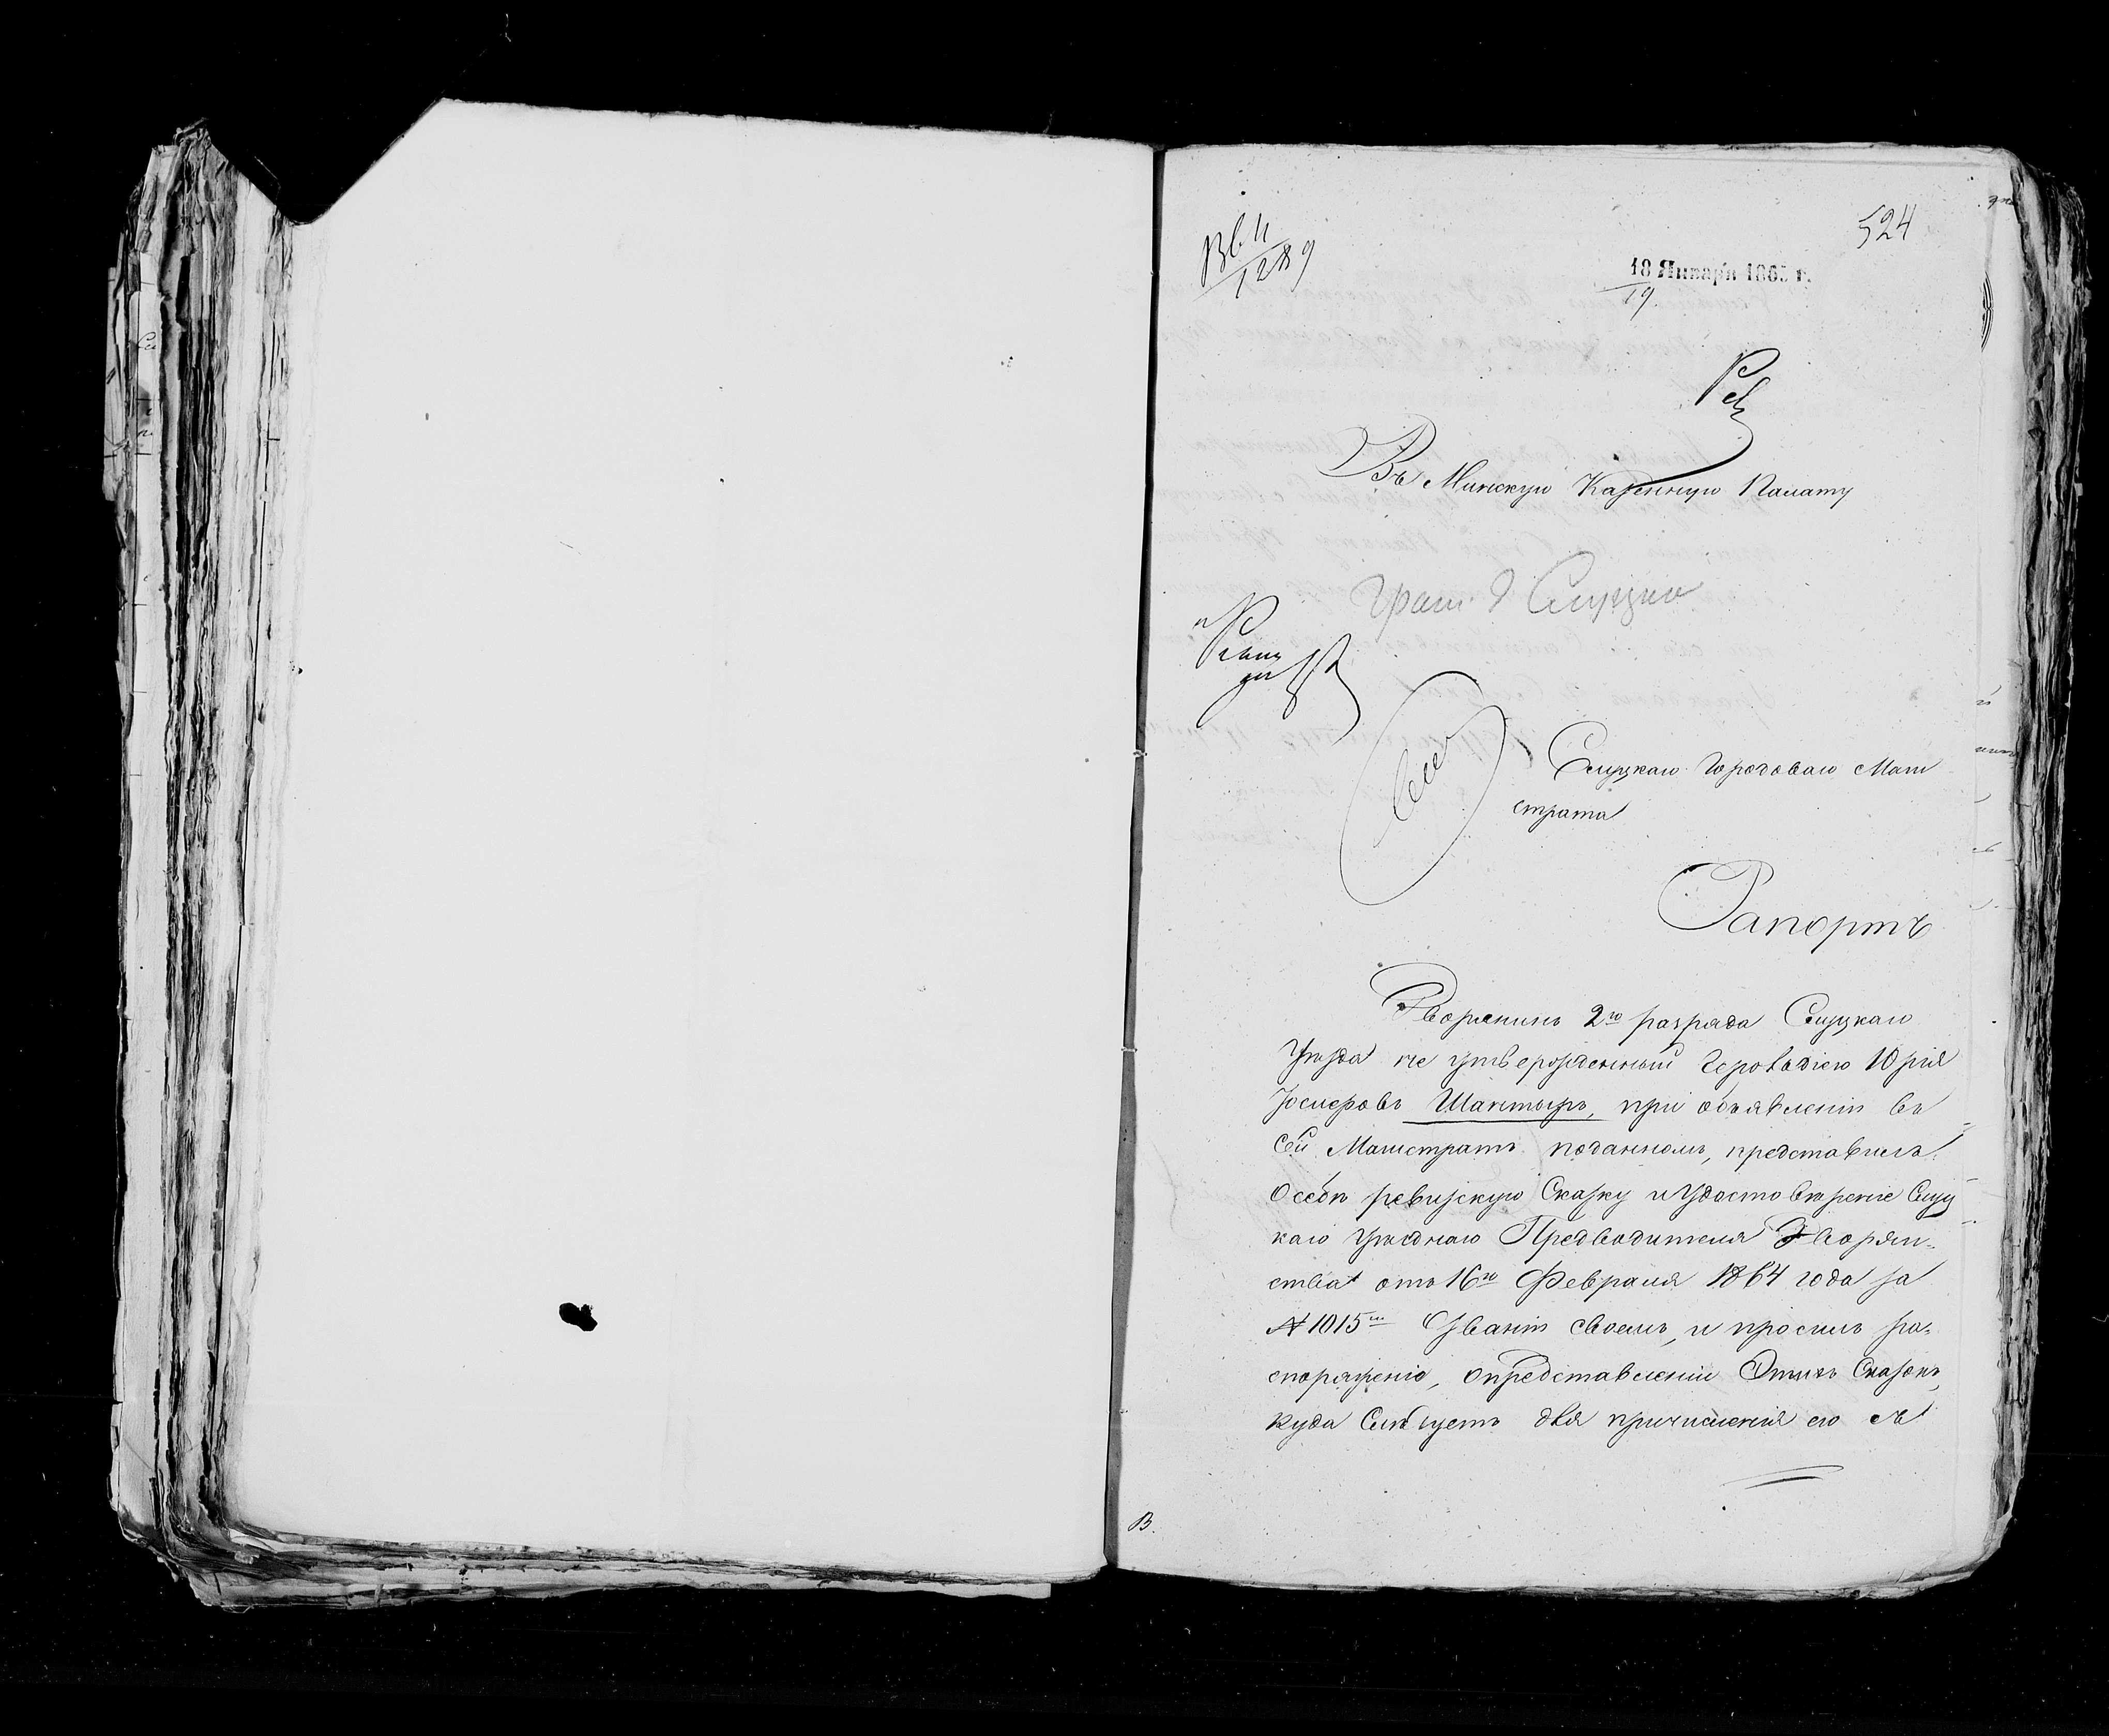 524
1289
18 Января 1865 г.
19.
Рев
Въ Минскую Казенную Палату
Граж. Слуцка
Слуцкаго Городоваго Маги
страта
Рапортъ
Дворянинъ 2го разряда Слуцкаго
Уѣзда не утвержденный Герольдіею Юрій
Іосифовъ Шантыръ, при объявленіи въ
Сей Магистратъ поданномъ, представилъ
о себѣ ревизскую Сказку и Удостовѣреніе Слуц
каго Уѣзднаго Предводителя Дворян-
ства отъ 16го Февраля 1864 года за
№ 1015м О званіи своемъ, и просилъ ра-
споряженія, о представленіи Этихъ Сказокъ,
куда Слѣдуетъ для причисленія его съ
В.